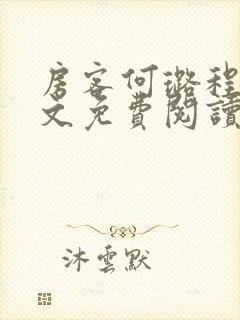 房客何璐程
文免費閱讀
沐雲默